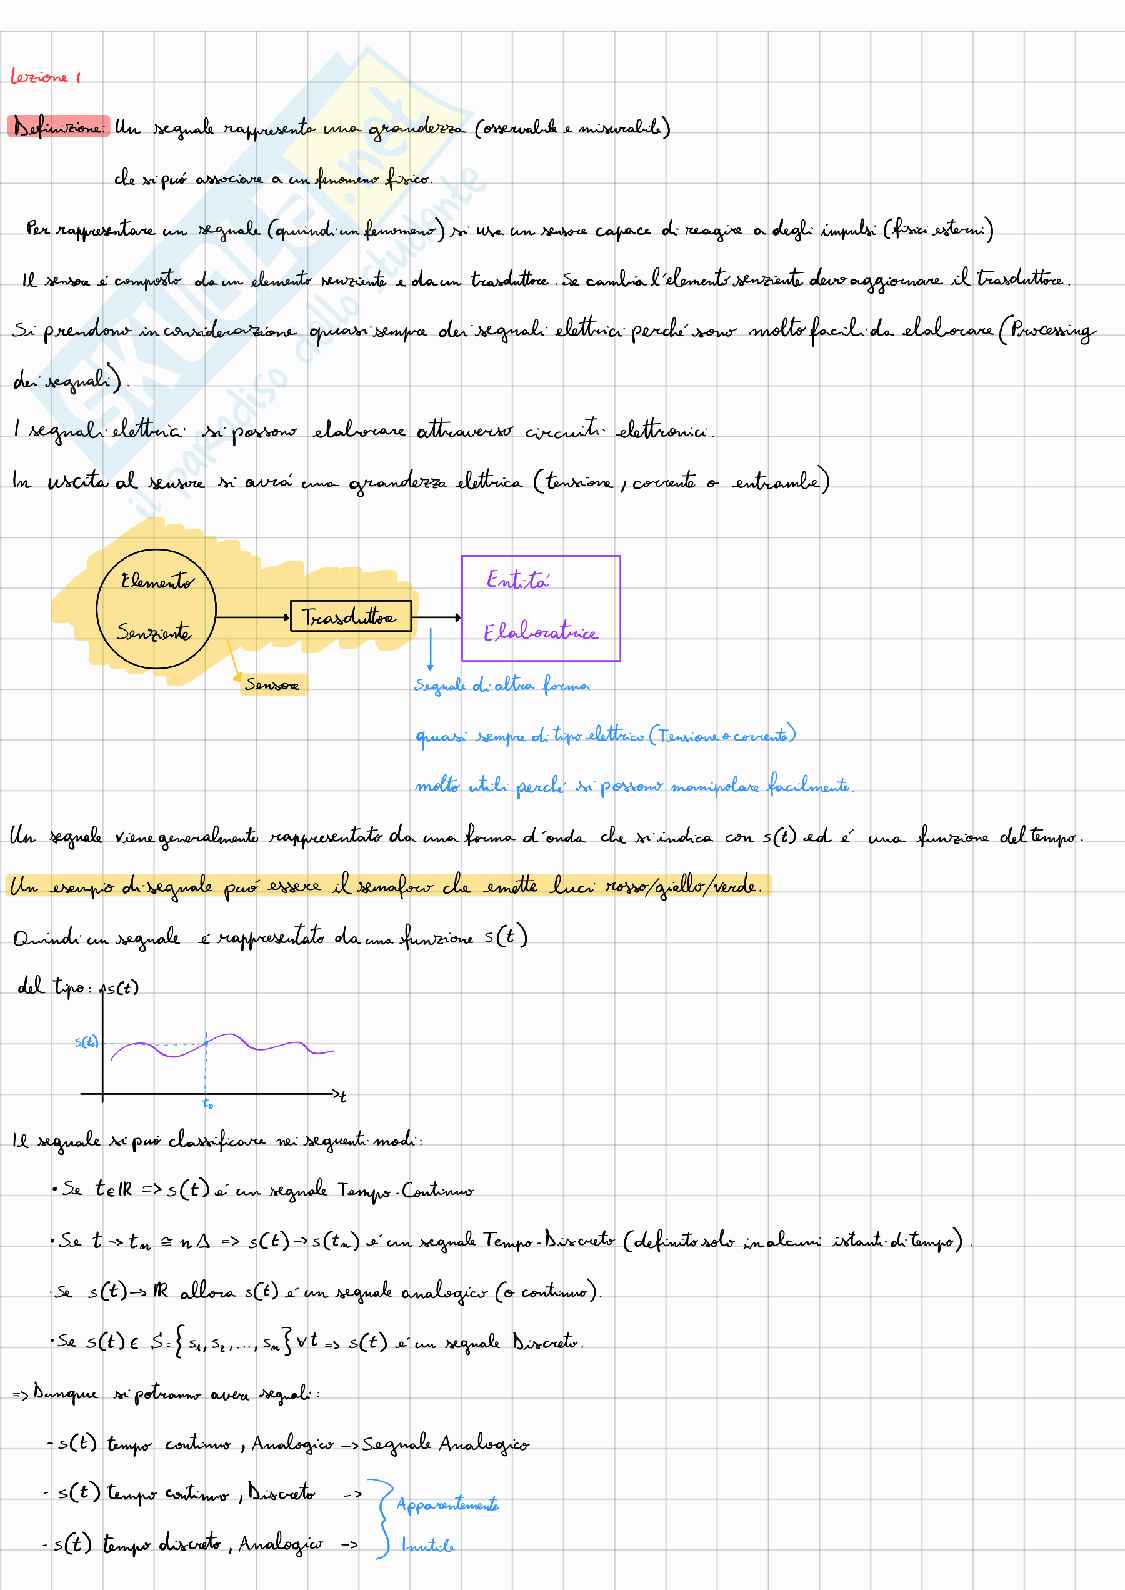 Lezione 1
Definizione: Un segnale rappresenta una grandezza (osservabile e misurabile)
che si può associare a un fenomeno fisico.
Per rappresentare un segnale (quindi un fenomeno) si usa un sensore capace di reagire a degli impulsi (fisici esterni)
Il sensore é composto da un elemento senziente e da un trasduttore. Se cambia l'elemento senziente devo aggiornare il trasduttore.
Si prendono in considerazione quasi sempre dei segnali elettrici perché sono molto facili da elaborare (Processing
dei segnali).
I segnali elettrici si possono elaborare attraverso circuiti elettronici.
In uscita al sensore si avrá una grandezza elettrica (tensione, corrente o entrambe)
Elemento
Senziente
Trasduttore
Entitá
Elaboratrice
Sensore
Segnale di altra forma
quasi sempre di tipo elettrico (Tensione o corrente)
molto utili perché si possono manipolare facilmente.
Un segnale viene generalmente rappresentato da una forma d'onda che si indica con s(t) ed é una funzione del tempo.
Un esempio di segnale puó essere il semaforo che emette luci rosso/giallo/verde.
Quindi un segnale é rappresentato da una funzione s(t)
del tipo: s(t)
s(t₀)
t
t₀
Il segnale si puó classificare nei seguenti modi:
• Se t∈ℝ => s(t) é un segnale Tempo-Continuo
• Se t → tₙ ≅ nΔ => s(t) → s(tₙ) é un segnale Tempo-Discreto (definito solo in alcuni istanti di tempo).
• Se s(t) → ℝ allora s(t) é un segnale analogico (o continuo).
• Se s(t) ∈ S={s₁, s₂, ..., sₙ} ∀t => s(t) é un segnale Discreto.
=> Dunque si potranno avere segnali:
- s(t) tempo continuo, Analogico -> Segnale Analogico
- s(t) tempo continuo, Discreto ->
- s(t) tempo discreto, Analogico ->
Apparentemente
Inutile
SKUOLA.net
il paradiso dello studente